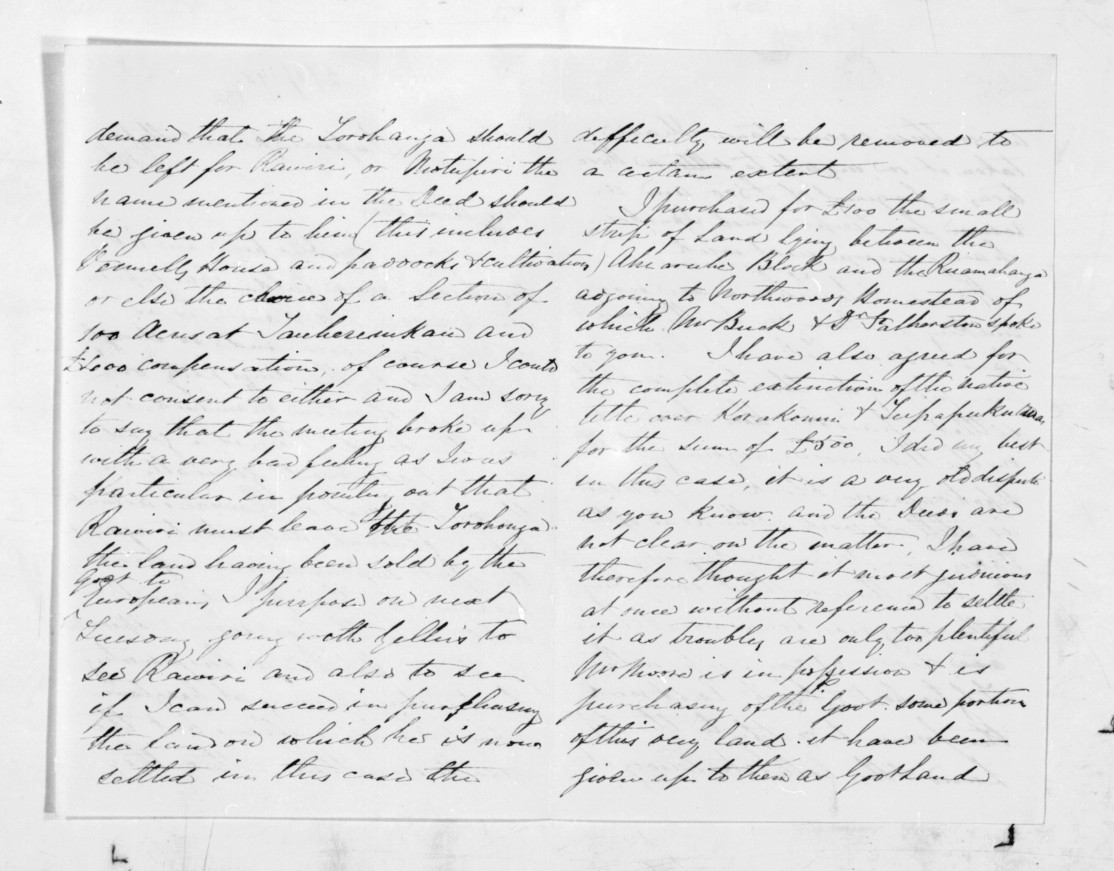 demand that the Torohanga should
be left for Rawiri, or Motupiri the
name mentioned in the Deed should
be given up to him (this includes
House and paddocks & cultivation)
or else the choice of a Section of
100 Acres at Tauherenikau and
compensation, of course I could
not consent to either and I am sorry
to say that the meeting broke up
with a very bad feeling as I was
particular in pointing out that
Rawiri must leave the Torohonga
the land having been sold by the
Govt to
Europeans, I purpose on next
Tuesday going with Gillies to
see Rawiri and also to see
if I can succeed in purchasing
the land on which he is now
settled in this case the
difficulty will be removed to
a certain extent
I purchased for £100 the small
strip of Land lying between the
Ahiaruhe Block and the Ruamahanga
adjoining to Northwoods Homestead of
which Mr Buck & Dr Fatherston spoke
to you. I have also agreed for
the complete extinction of the native
title over &
for the sum of I did my best
in this case, it is a very old dispute
as you know and the Deeds are
not clear on the matter, I have
therefore thought it most judicious
at once without reference to settle
it as troubles are only too plentiful
Mr Moore is in possession & is
purchasing of the Govt. some portion
of this very land it have been
given up to them as Govt Land